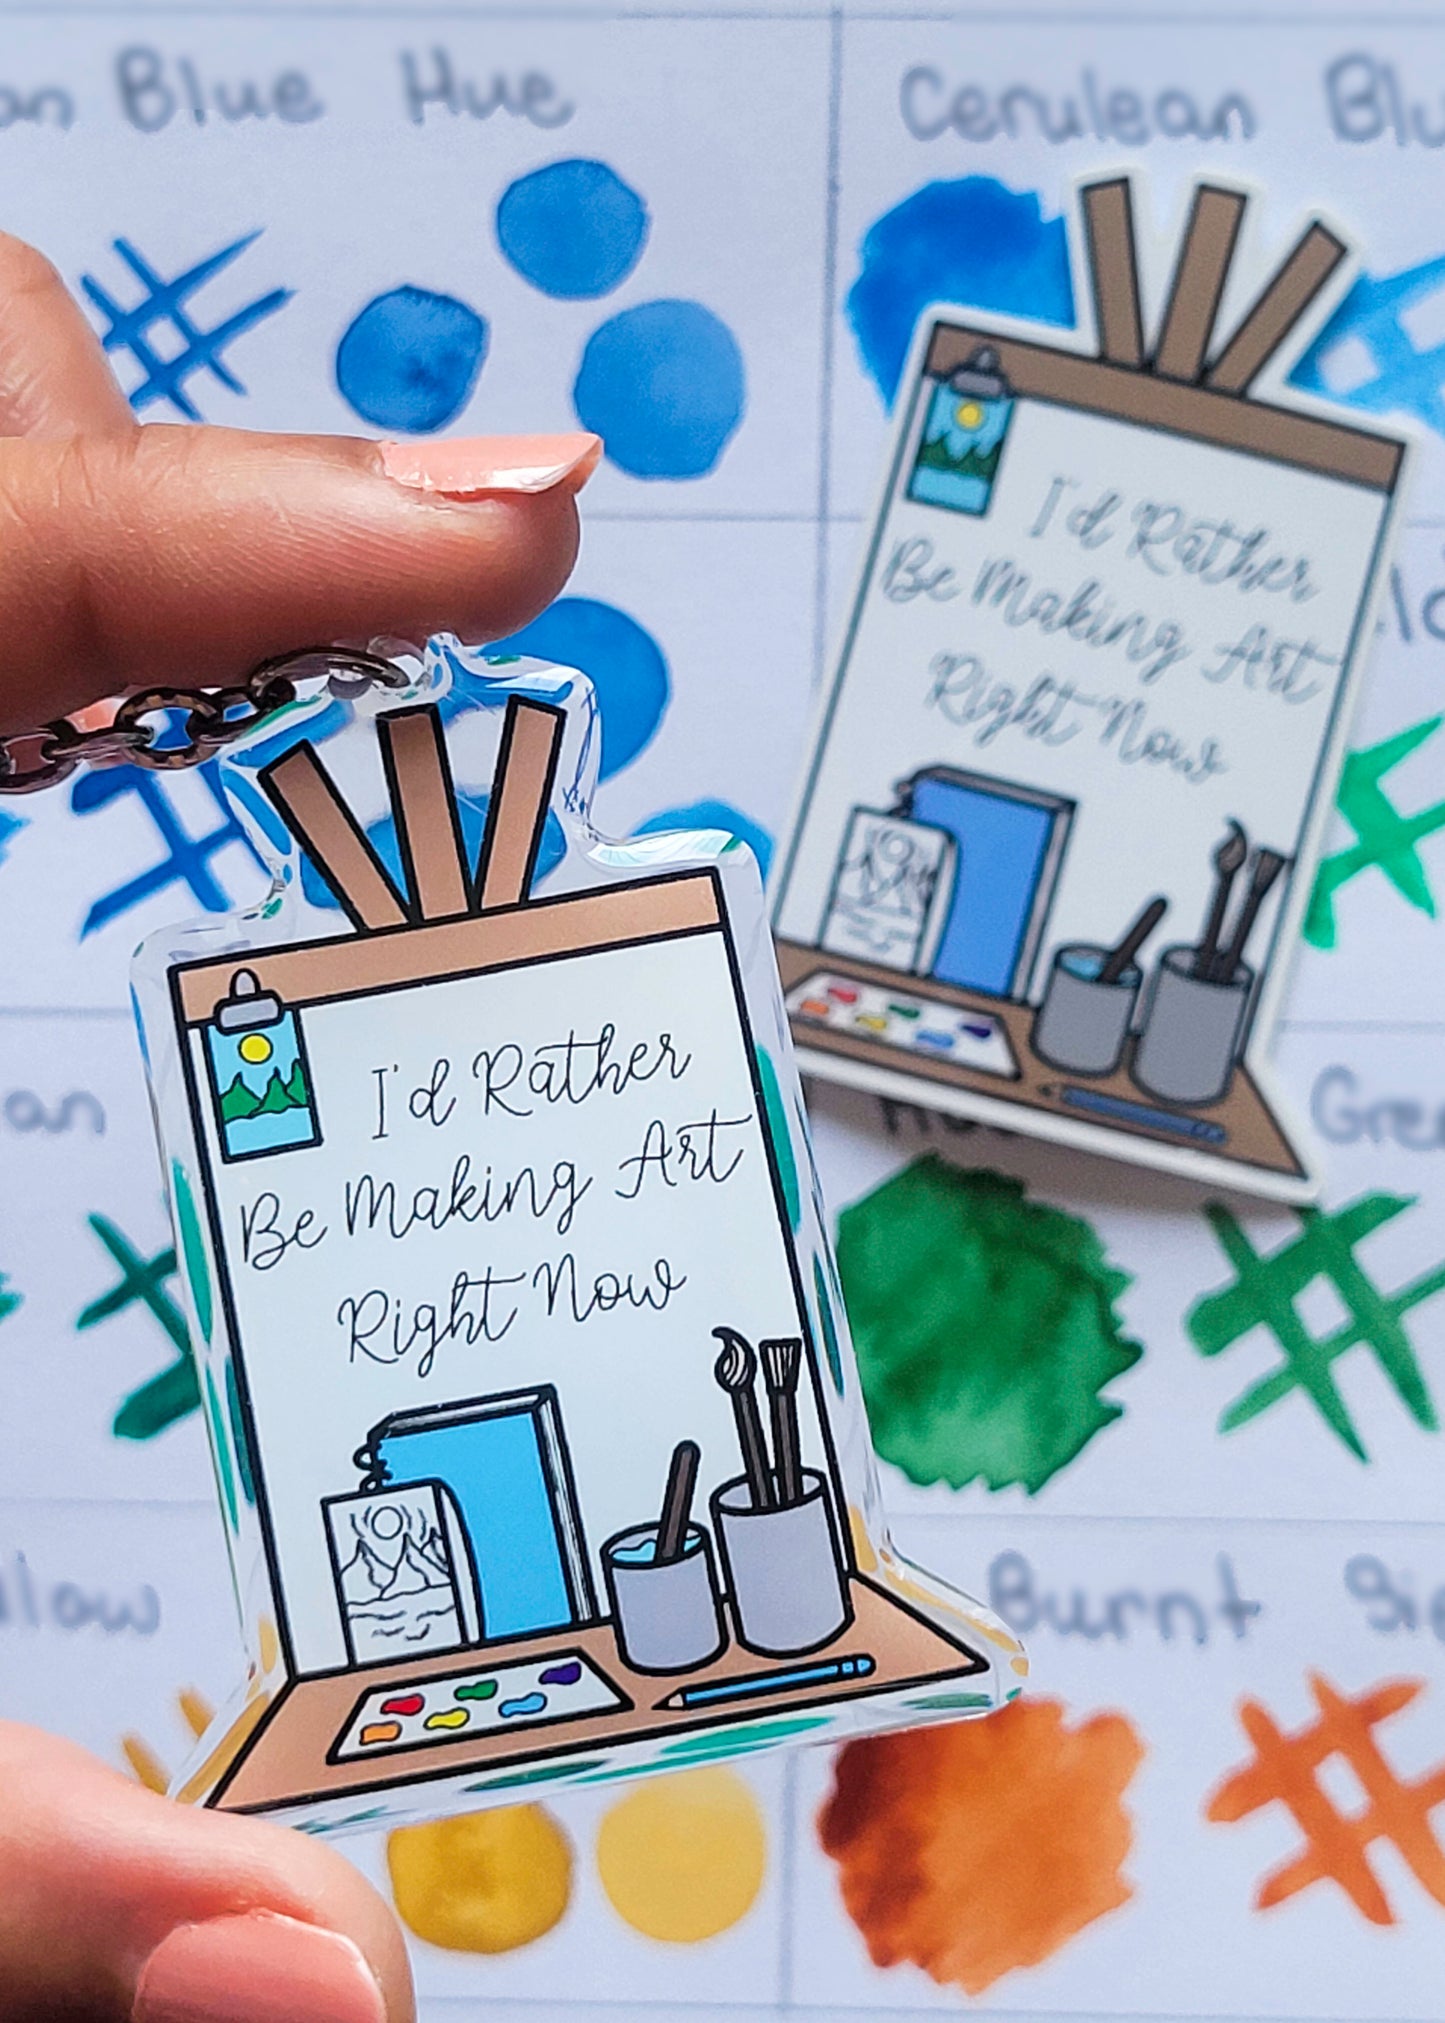 Blue Hue
Cerulean
I'd Rather
Be Making Art
Right Now
I'd Rather
Be Making Art
Right Now
Burnt